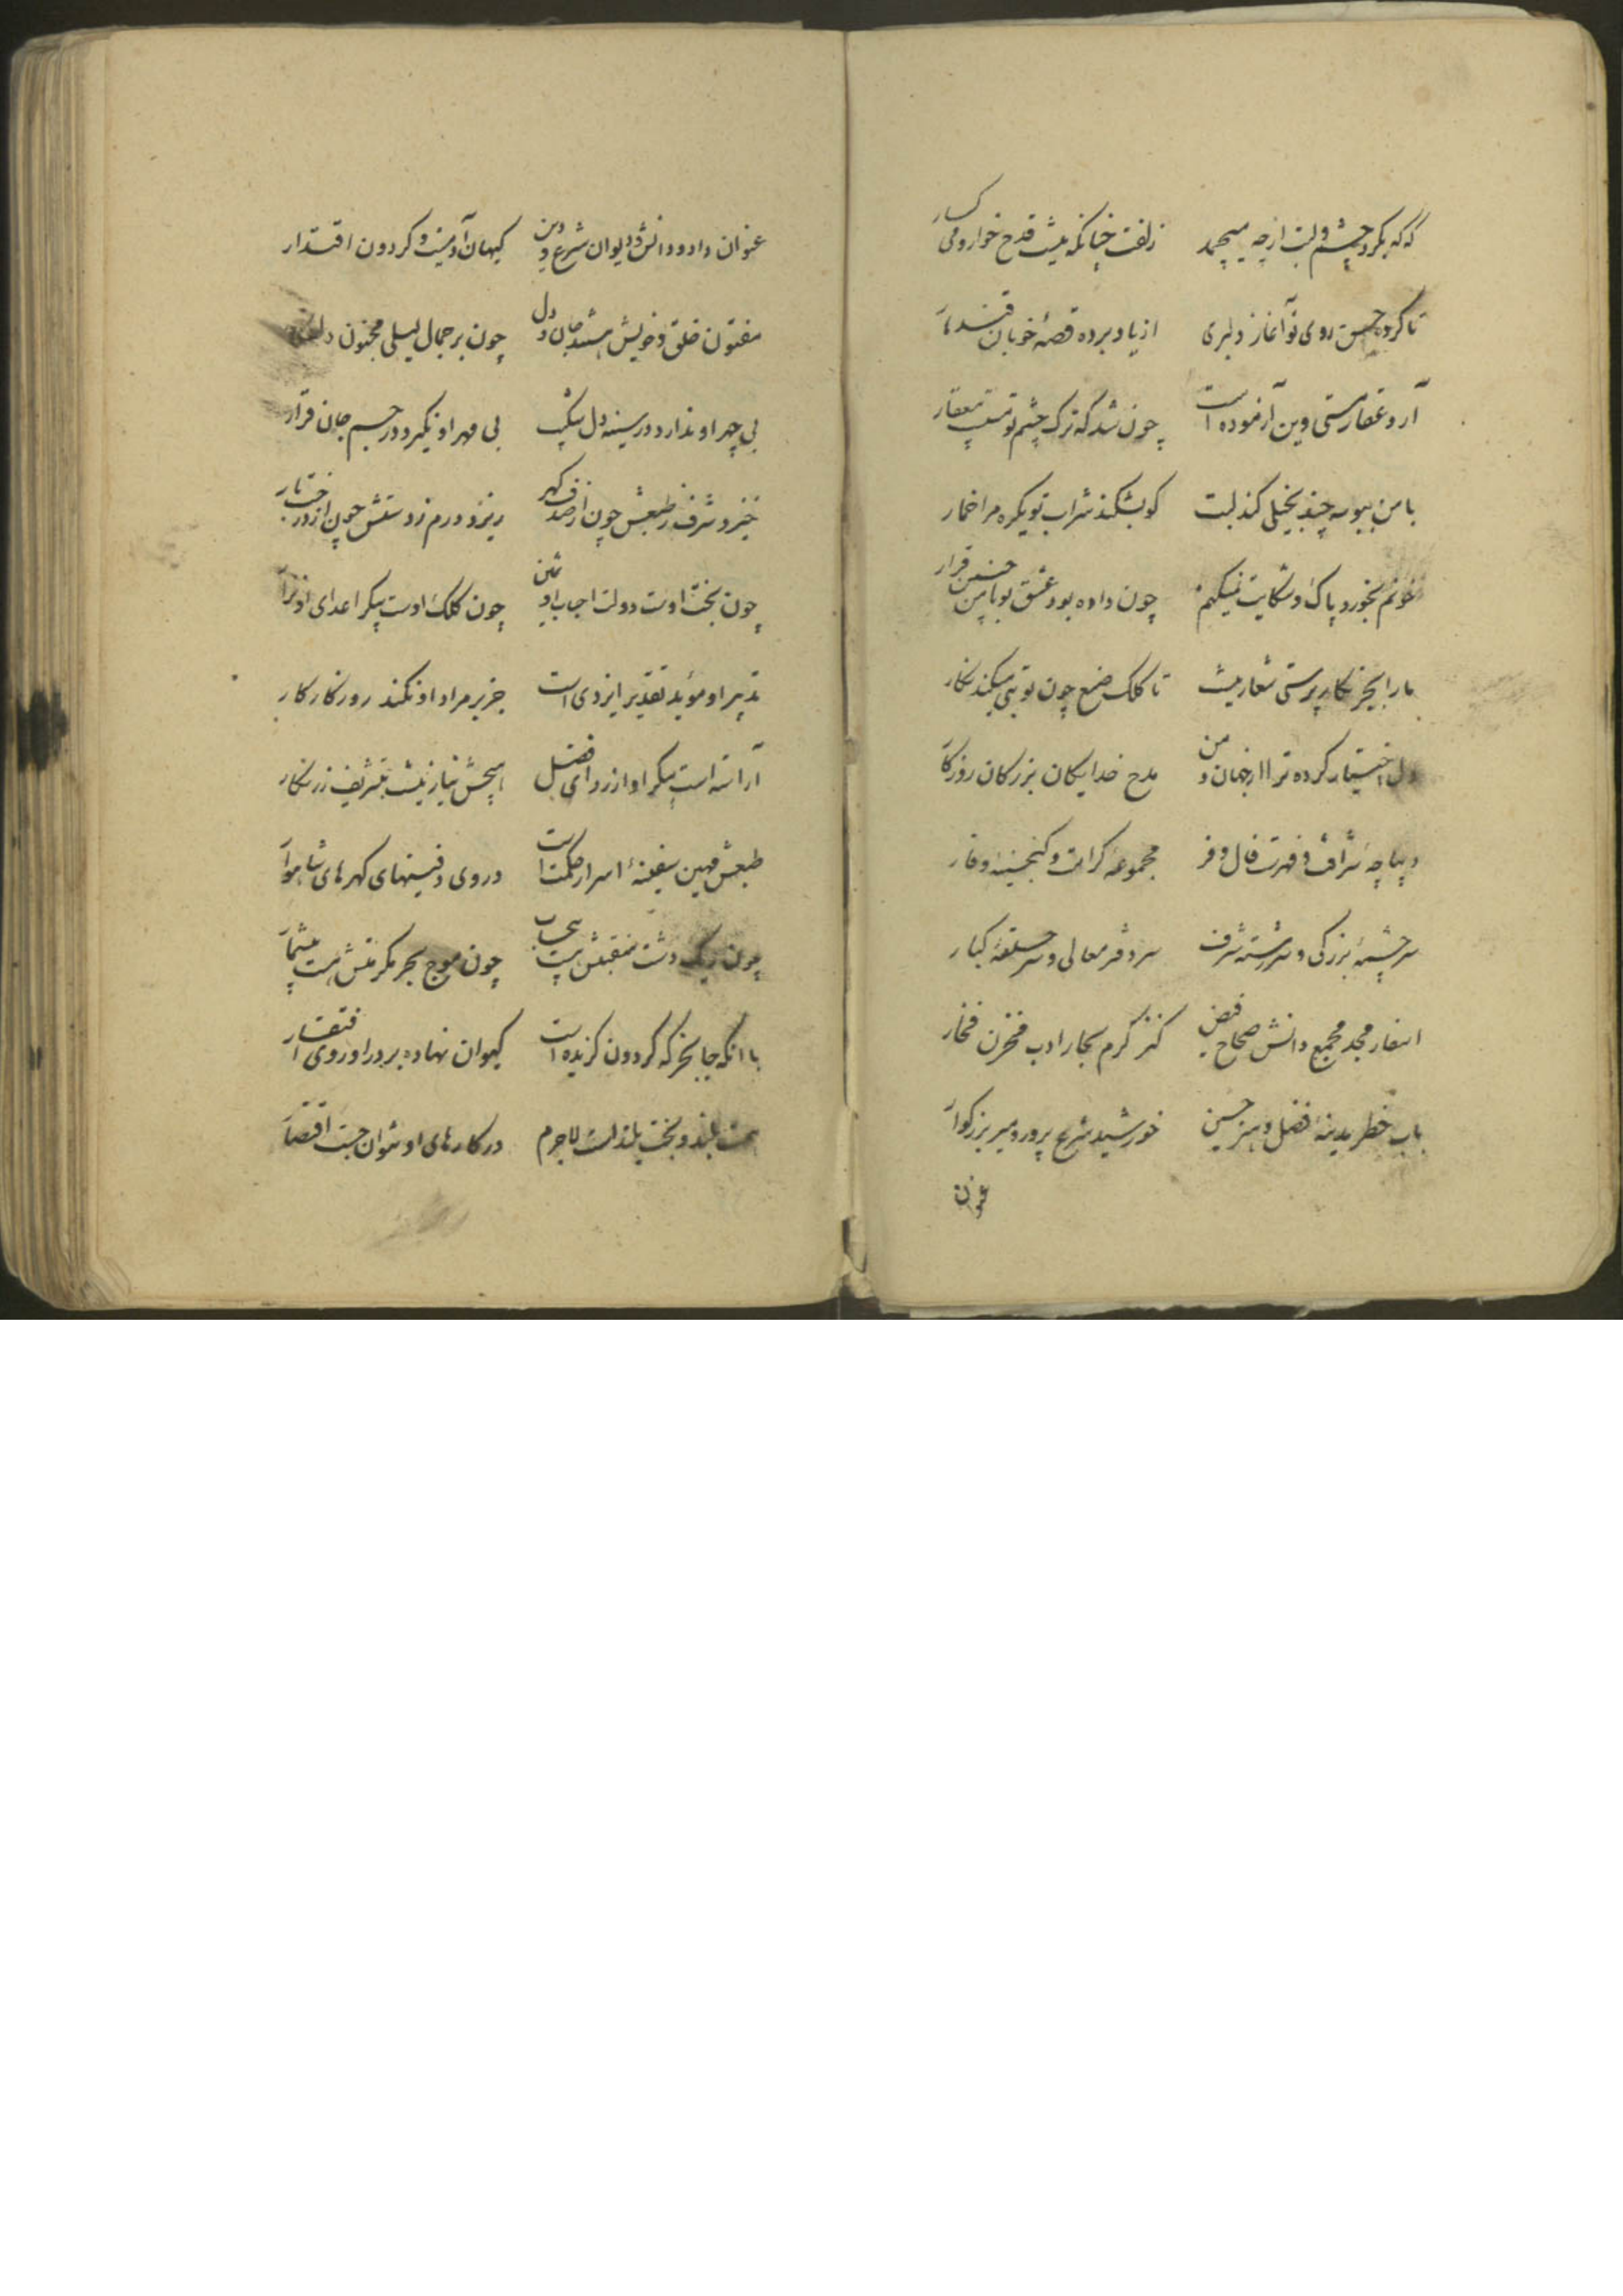 که که بکرد چشم و لبت از چه میچمد زلفت چنانکه نیست قدح خوار و می کسار
تا کرده حسن روی تو آغاز دلبری از یاد برده قصهٔ خوبان قندهار
آرد عقار مستی وین آزموده است چون شد که ترک چشم تو مست بی عقار
با من ببوسه چند بخیلی کند لبت کو بشکند شراب تو یکره مرا خمار
خونم بخورد پاک و شکایت نمیکنم چون داده بود عشق تو با من چنین قرار
ما را بجز نکار پرستی شعار نیست تا کلک صنع چون تو بتی میکند نکار
دل اختیار کرده ترا از جهان و من مدح خدایکان بزرکان روزکار
دیباچهٔ شرافت و فهرست فال و فر مجموعهٔ کرامت و کنجینهٔ وقار
سرچشمهٔ بزرکی و سررشتهٔ شرف سر دفتر معالی و سر حلقهٔ کبار
اسفار مجد مجمع دانش صحاح فضل کنز کرم بحار ادب مخزن فخار
باب خطر مدینهٔ فضل و هنر حسین خورشید شرع پرور و میر بزرکوار
عنوان
عنوان داد و دانش و دیوان شرع و دین کیهان آدمیت و کردون اقتدار
مفتون خلق و خویش هستند جان و دل چون بر جمال لیلی مجنون
بی چهر او ندارد در سینه دل شکیب بی مهر او نکیرد در جسم جان قرار
خیزد شرف ز طبعش چون از صدف کهر ریزد درم ز دستش چون از
چون بخت اوست دولت احباب او ثمین چون کلک اوست پیکر اعدای او نزار
تدبیر او مؤید تقدیر ایزدی است جز بر مراد او نکند روزکار کار
آراسته است پیکر او از ردای فضل هیچش نیاز نیست بتشریف زرنکار
طبعش مهین سفینهٔ اسرار حکمت است در وی دفینهای کهرهای شاهوار
چون ریک دشت منقبتش بی حساب چون موج بحر مکرمتش هست بیشمار
با انکه جا بخرکه کردون کزیده است کیوان نهاده بر در او روی افتقار
همت بلند و بخت بلند است لاجرم در کارهای او نتوان جست اقتصار